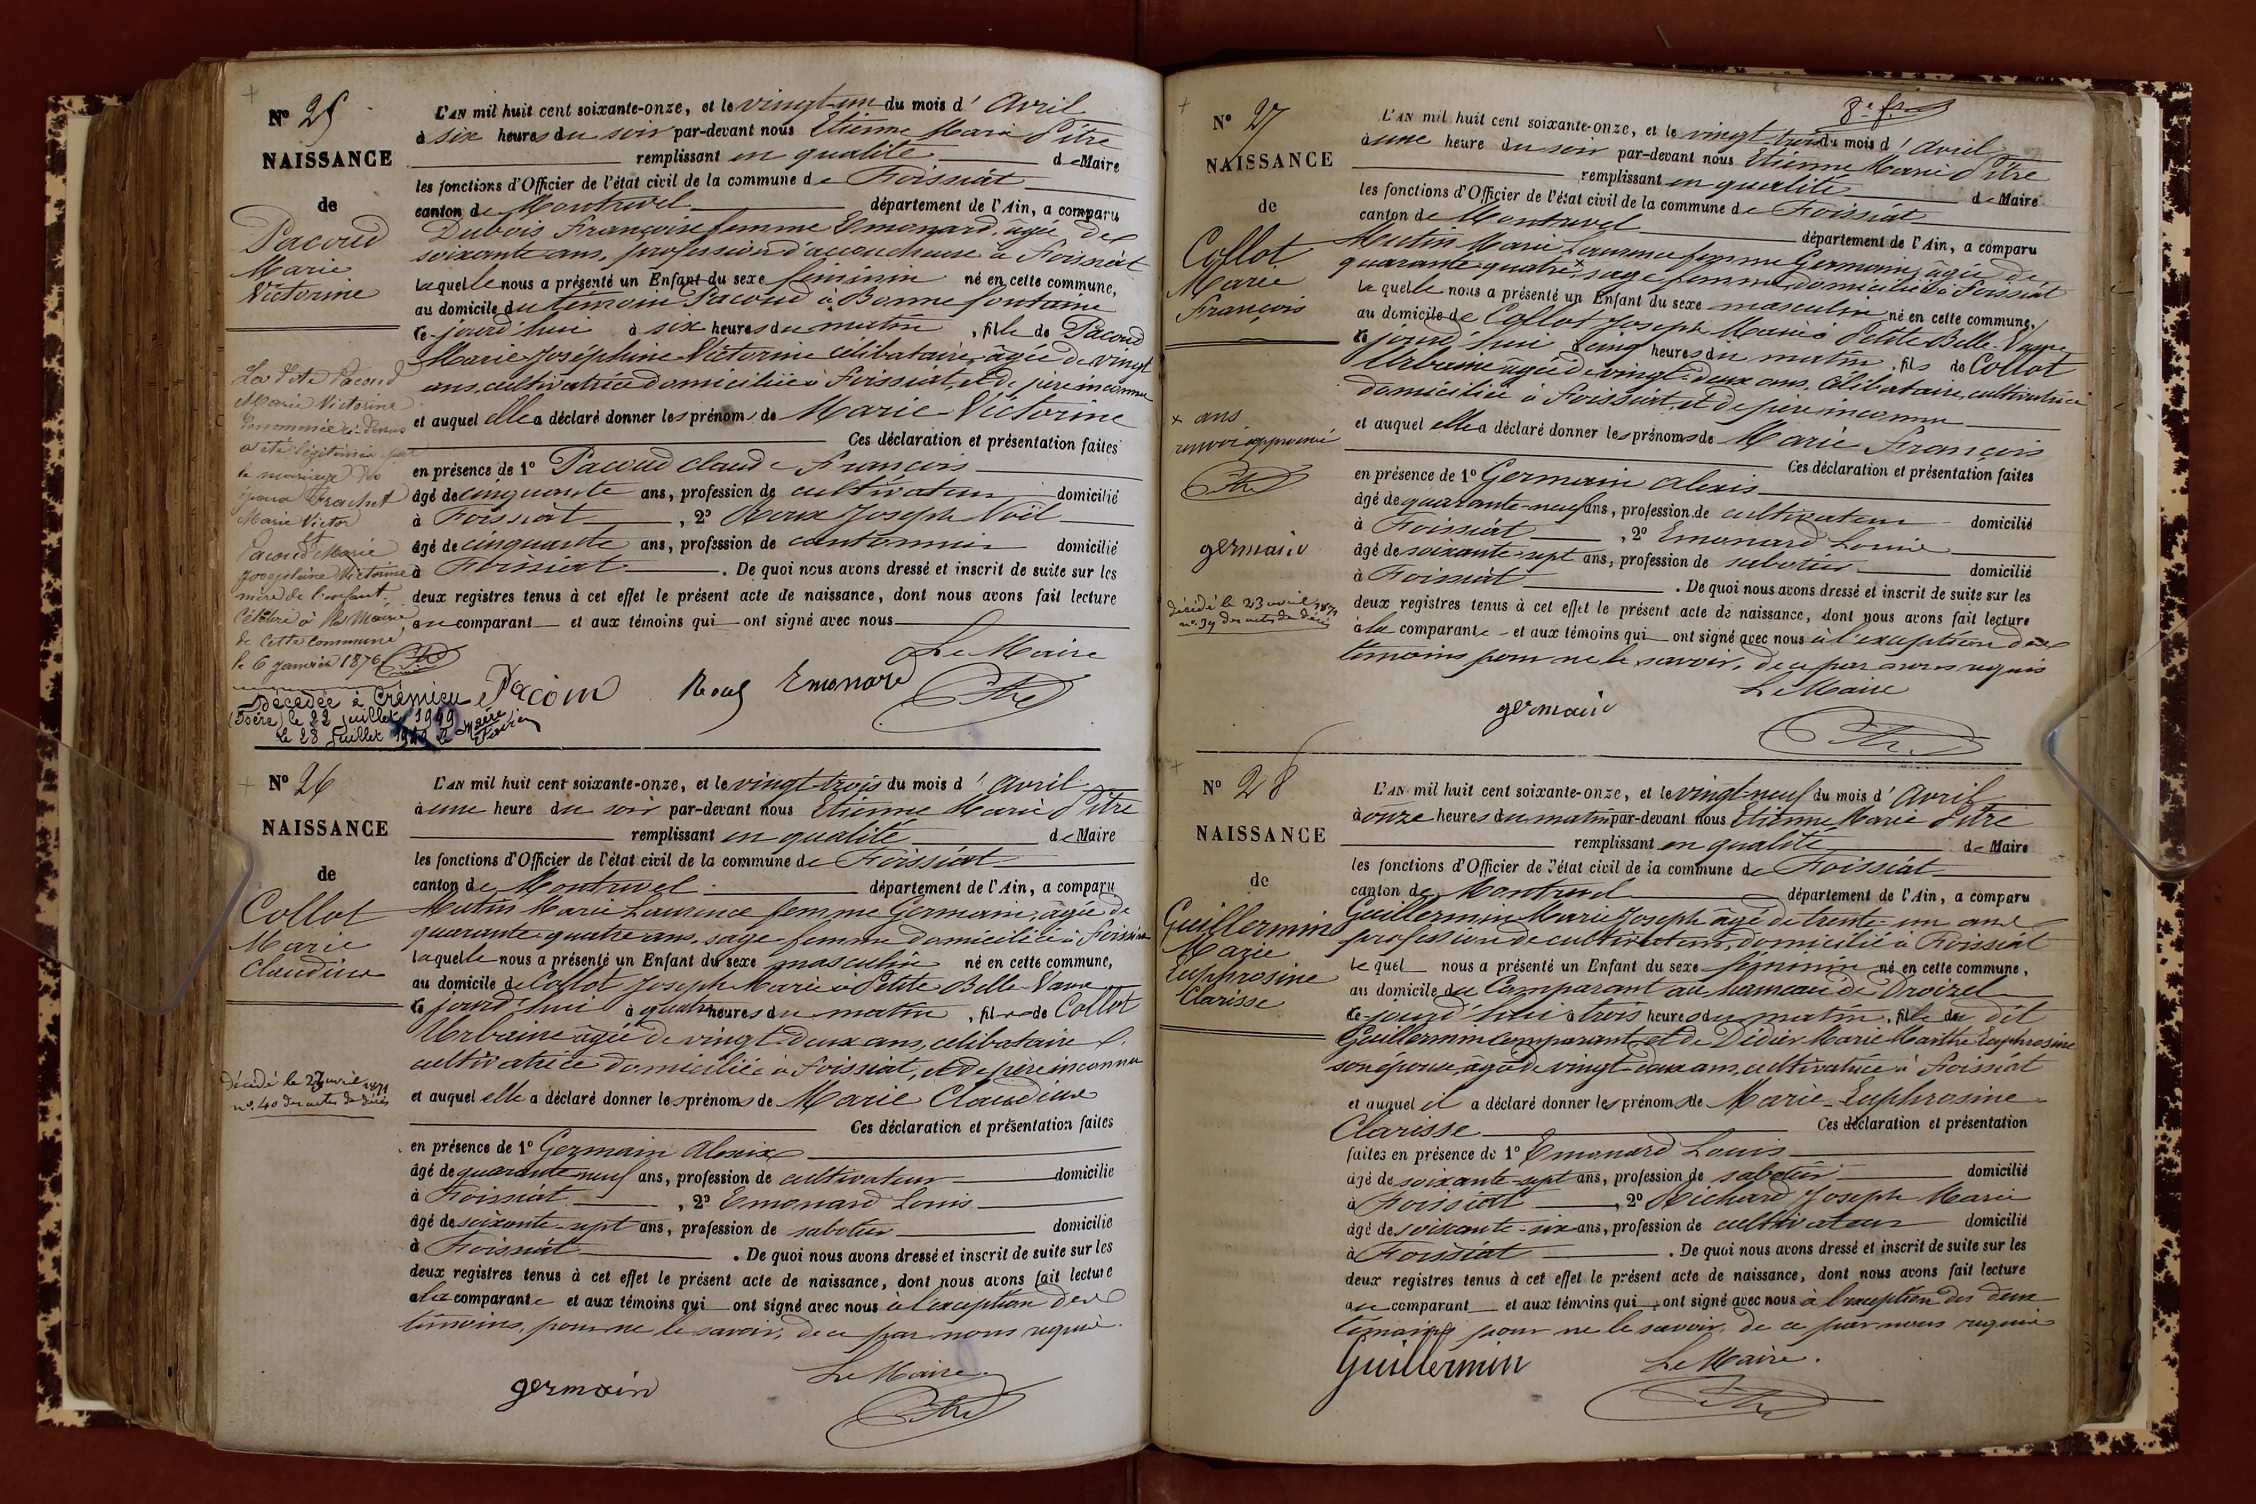 N° 25
NAISSANCE
de
Pacoud
Marie
Victorine
L'AN mil huit cent soixante-onze, et le vingt-un du mois d' Avril
à six heures du soir par-devant nous Etienne Marie Pitre
remplissant en qualité de Maire
les fonctions d'Officier de l'état civil de la commune de Foissiat
canton de Montrevel département de l'Ain, a comparu
Dubois Françoise femme Emonard, agée de
soixante ans, profession d'accoucheuse à Foissiat
laquelle nous a présenté un Enfant du sexe féminin né en cette commune,
au domicile du témoin Pacoud à Bonne fontaine
ce jourd'hui à six heures du matin, fille de Pacoud
Marie Joséphine Victorine célibataire, âgée de vingt
ans, cultivatrice domiciliée à Foissiat, et de père inconnu
et auquel elle a déclaré donner les prénoms de Marie Victorine
Ces déclaration et présentation faites
en présence de 1° Pacoud Claude François
âgé de cinquante ans, profession de cultivateur domicilié
à Foissiat, 2° Roux Joseph Noël
âgé de cinquante ans, profession de cantonnier domicilié
à Foissiat. De quoi nous avons dressé et inscrit de suite sur les
deux registres tenus à cet effet le présent acte de naissance, dont nous avons fait lecture
au comparant et aux témoins qui ont signé avec nous
Le Maire
Pacoud Roux Emonard Pitre
La dte Pacoud
Marie Victorine
dénommée ci-dessus
a été légitimée par
le mariage des
époux Brachet
Marie Victor
et
Pacoud Marie
Joséphine Victorine
mère de l'enfant.
Célébré à la Mairie
de cette commune
le 6 janvier 1876
Décédée à Crémieu
(Isère) le 22 juillet 1949
le 28 Juillet 1949 le
N° 26
NAISSANCE
de
Collot
Marie
Claudius
décédé le 23 avril 1871
n° 40 des actes de décès
L'AN mil huit cent soixante-onze, et le vingt-trois du mois d' Avril
à une heure du soir par-devant nous Etienne Marie Pitre
remplissant en qualité de Maire
les fonctions d'Officier de l'état civil de la commune de Foissiat
canton de Montrevel département de l'Ain, a comparu
Mutin Marie Laurence femme Germain, âgée de
quarante-quatre ans, sage-femme domiciliée à Foissiat
laquelle nous a présenté un Enfant du sexe masculin né en cette commune,
au domicile de Collot Joseph Marie à Petite Belle Vavre
ce jourd'hui à quatre heures du matin, fils de Collot
Urbaine âgée de vingt-deux ans, célibataire
cultivatrice domiciliée à Foissiat, et de père inconnu
et auquel elle a déclaré donner les prénoms de Marie Claudius
Ces déclaration et présentation faites
en présence de 1° Germain Alexix
âgé de quarante-neuf ans, profession de cultivateur domicilié
à Foissiat, 2° Emonard Louis
âgé de soixante-sept ans, profession de sabotier domicilié
à Foissiat. De quoi nous avons dressé et inscrit de suite sur les
deux registres tenus à cet effet le présent acte de naissance, dont nous avons fait lecture
à la comparante et aux témoins qui ont signé avec nous à l'exception des
témoins, pour ne le savoir, de ce par nous requis.
Le Maire
germain Pitre
N° 27
NAISSANCE
de
Collot
Marie
François
x ans
renvoi approuvé
Pitre
germain
décédé le 23 avril 1871
n° 39 des actes de décès
L'AN mil huit cent soixante-onze, et le vingt-trois du mois d' Avril
à une heure du soir par-devant nous Etienne Marie Pitre
remplissant en qualité de Maire
les fonctions d'Officier de l'état civil de la commune de Foissiat
canton de Montrevel département de l'Ain, a comparu
Mutin Marie Laurence femme Germain, âgée de
quarante-quatre x sage-femme domiciliée à Foissiat
laquelle nous a présenté un Enfant du sexe masculin né en cette commune,
au domicile de Collot Joseph Marie à Petite Belle Vavre
ce jourd'hui à cinq heures du matin, fils de Collot
Urbaine âgée de vingt-deux ans, célibataire, cultivatrice
domiciliée à Foissiat, et de père inconnu
et auquel elle a déclaré donner les prénoms de Marie François
Ces déclaration et présentation faites
en présence de 1° Germain Alexis
âgé de quarante-neuf ans, profession de cultivateur domicilié
à Foissiat, 2° Emonard Louis
âgé de soixante-sept ans, profession de sabotier domicilié
à Foissiat. De quoi nous avons dressé et inscrit de suite sur les
deux registres tenus à cet effet le présent acte de naissance, dont nous avons fait lecture
à la comparante et aux témoins qui ont signé avec nous à l'exception des
témoins pour ne le savoir, de ce par nous requis
Le Maire
germain Pitre
N° 28
NAISSANCE
de
Guillermin
Marie
Euphrosine
Clarisse
L'AN mil huit cent soixante-onze, et le vingt-neuf du mois d' Avril
à onze heures du matin par-devant nous Etienne Marie Pitre
remplissant en qualité de Maire
les fonctions d'Officier de l'état civil de la commune de Foissiat
canton de Montrevel département de l'Ain, a comparu
Guillermin Marie Joseph âgé de trente-un ans
profession de cultivateur, domicilié à Foissiat
lequel nous a présenté un Enfant du sexe féminin né en cette commune,
au domicile du Comparant au hameau de Droizel
ce jourd'hui à trois heures du matin, fille du dit
Guillermin comparant et de Didier Marie Marthe Euphrosine
son épouse, âgée de vingt-deux ans, cultivatrice à Foissiat
et auquel il a déclaré donner les prénoms de Marie Euphrosine
Clarisse Ces déclaration et présentation
faites en présence de 1° Emonard Louis
âgé de soixante-sept ans, profession de sabotier domicilié
à Foissiat, 2° Richard Joseph Marie
âgé de soixante-six ans, profession de cultivateur domicilié
à Foissiat. De quoi nous avons dressé et inscrit de suite sur les
deux registres tenus à cet effet le présent acte de naissance, dont nous avons fait lecture
au comparant et aux témoins qui ont signé avec nous à l'exception des deux
témoins pour ne le savoir, de ce par nous requis
Le Maire.
Guillermin Pitre